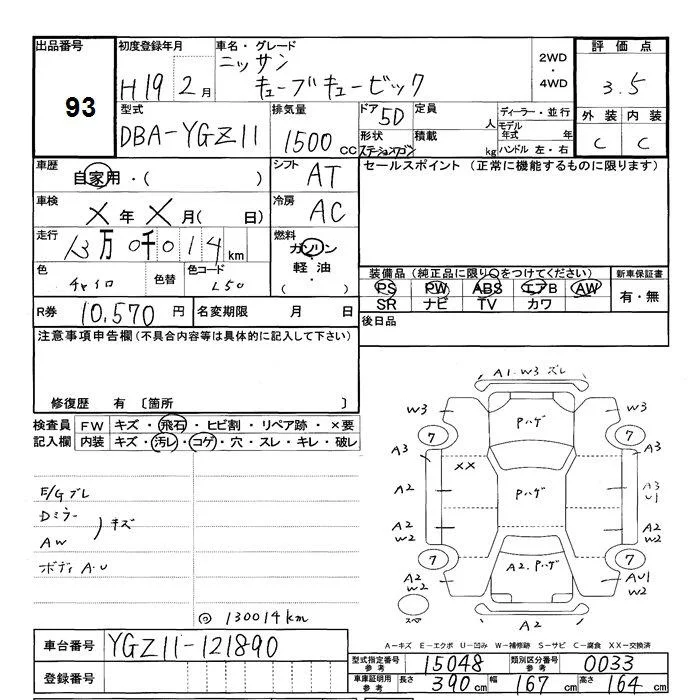 出品番号 初度登録年月 車名・グレード 評価点
93 H19 2月 ニッサン キューブキュービック 2WD・4WD 3.5
型式 排気量 ドア 5D 定員 人 ディーラー・並行 外装 内装
DBA-YGZ11 1500CC 形状 ステーションワゴン 積載 kg モデル年式 年 ハンドル 左・右 C C
車歴 自家用・( ) シフト AT セールスポイント(正常に機能するものに限ります)
車検 X年X月( 日) 冷房 AC
走行 13万0千014km 燃料 ガソリン 軽油・( )
色 チャイロ 色替 色コード L50
装備品(純正品に限り○をつけてください) 新車保証書
PS PW ABS エアB AW 有・無
SR ナビ TV カワ
R券 10,570円 名変期限 月 日 後日品
注意事項申告欄(不具合内容等は具体的に記入して下さい)
修復歴 有 〔箇所 〕
検査員記入欄 FW キズ・飛石・ヒビ割・リペア跡・×要
内装 キズ・汚レ・コゲ・穴・スレ・キレ・破レ
E/Gブレ
Dミラー
AW
キズ
ボディA.U
◎130014km
A1.W3 ズレ
W3 Pハゲ W3
7 7
A3 XX A3
A2 Pハゲ A3 U1
A2 W2 A2 W2
7 A2.Pハゲ 7
A2 W2 AU1 W2
A2
A-キズ E-エクボ U-凹み W-補修跡 S-サビ C-腐食 XX-交換済
車台番号 YGZ11-121890
登録番号
型式指定番号参考 15048 類別区分番号参考 0033
車庫証明用参考 長さ 390cm 幅 167cm 高さ 164cm